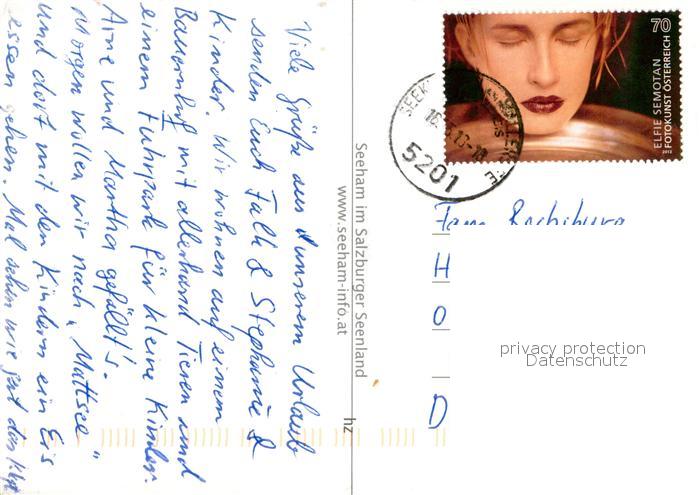 Viele Grüße aus unserem Urlaub
senden Euch Falk & Stephanie &
Kinder. Wir wohnen auf einem
Bauernhof mit allerhand Tieren und
einem Fuhrpark für kleine Kinder.
Arne und Martha gefällt's.
Morgen wollen wir nach "Mattsee"
und dort mit den Kindern ein Eis
essen gehen. Mal sehen wie gut das
Seeham im Salzburger Seenland
www.seeham-info.at
hz
70
ELFIE SEMOTAN
FOTOKUNST ÖSTERREICH
2013
5201
Fam.
H
O
D
privacy protection
Datenschutz